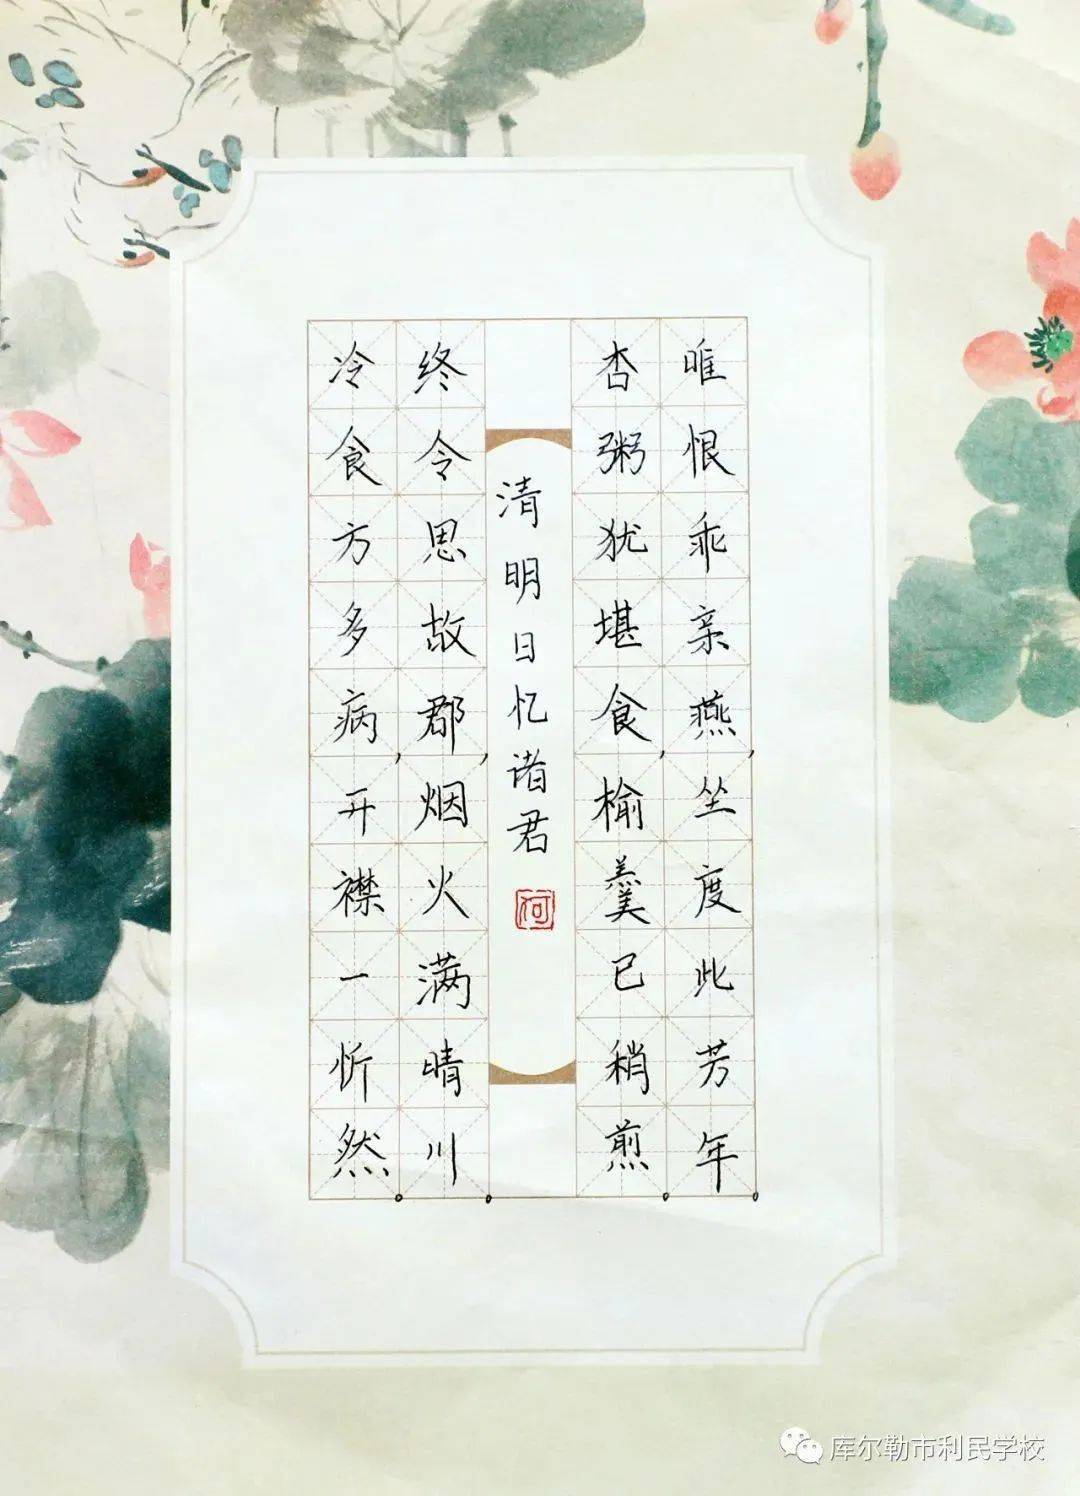 冷食方多病，开襟一忻然。
终令思故郡，烟火满晴川。
清明日忆诸君
杏粥犹堪食，榆羹已稍煎。
唯恨乖亲燕，坐度此芳年。
库尔勒市利民学校